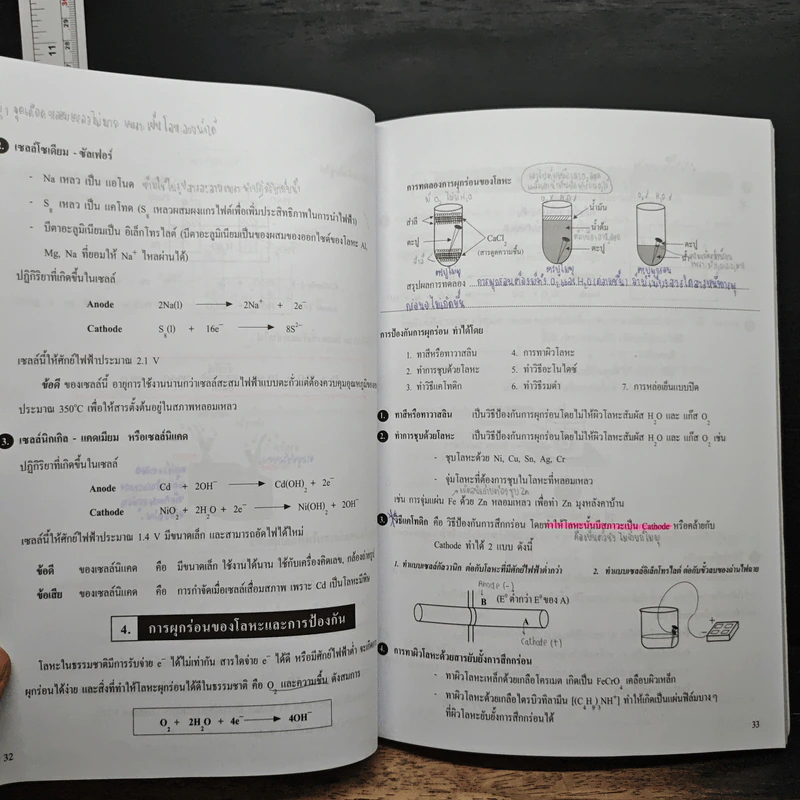 2. เซลล์โซเดียม - ซัลเฟอร์
- Na เหลว เป็น แอโนด
- S₈ เหลว เป็น แคโทด (S₈ เหลวผสมผงแกรไฟต์เพื่อเพิ่มประสิทธิภาพในการนำไฟฟ้า)
- บีตาอะลูมิเนียมเป็น อิเล็กโทรไลต์ (บีตาอะลูมิเนียมเป็นของผสมของออกไซด์ของโลหะ Al,
Mg, Na ที่ยอมให้ Na⁺ ไหลผ่านได้)
ปฏิกิริยาที่เกิดขึ้นในเซลล์
Anode 2Na(l) ⟶ 2Na⁺ + 2e⁻
Cathode S₈(l) + 16e⁻ ⟶ 8S²⁻
เซลล์นี้ให้ศักย์ไฟฟ้าประมาณ 2.1 V
ข้อดี ของเซลล์นี้ อายุการใช้งานนานกว่าเซลล์สะสมไฟฟ้าแบบตะกั่วแต่ต้องควบคุมอุณหภูมิ
ประมาณ 350°C เพื่อให้สารตั้งต้นอยู่ในสภาพหลอมเหลว
3. เซลล์นิกเกิล - แคดเมียม หรือเซลล์นิแคด
ปฏิกิริยาที่เกิดขึ้นในเซลล์
Anode Cd + 2OH⁻ ⟶ Cd(OH)₂ + 2e⁻
Cathode NiO₂ + 2H₂O + 2e⁻ ⟶ Ni(OH)₂ + 2OH⁻
เซลล์นี้ให้ศักย์ไฟฟ้าประมาณ 1.4 V มีขนาดเล็ก และสามารถอัดไฟได้ใหม่
ข้อดี ของเซลล์นิแคด คือ มีขนาดเล็ก ใช้งานได้นาน ใช้กับเครื่องคิดเลข, กล้องถ่ายรูป
ข้อเสีย ของเซลล์นิแคด คือ การกำจัดเมื่อเซลล์เสื่อมสภาพ เพราะ Cd เป็นโลหะมีพิษ
4. การผุกร่อนของโลหะและการป้องกัน
โลหะในธรรมชาติมีการรับจ่าย e⁻ ได้ไม่เท่ากัน สารใดจ่าย e⁻ ได้ดี หรือมีศักย์ไฟฟ้าต่ำ จะเกิดการ
ผุกร่อนได้ง่าย และสิ่งที่ทำให้โลหะผุกร่อนได้ดีในธรรมชาติ คือ O₂ และความชื้น ดังสมการ
O₂ + 2H₂O + 4e⁻ ⟶ 4OH⁻
32
การทดลองการผุกร่อนของโลหะ
สำลี
ตะปู
CaCl₂
(สารดูดความชื้น)
น้ำมัน
น้ำต้ม
ตะปู
ตะปู
น้ำ
สรุปผลการทดลอง
การป้องกันการผุกร่อน ทำได้โดย
1. ทาสีหรือทาวาสลิน 4. การทาผิวโลหะ
2. ทำการชุบด้วยโลหะ 5. ทำวิธีอะโนไดซ์
3. ทำวิธีแคโทดิก 6. ทำวิธีรมดำ 7. การหล่อเย็นแบบปิด
1. ทาสีหรือทาวาสลิน เป็นวิธีป้องกันการผุกร่อนโดยไม่ให้ผิวโลหะสัมผัส H₂O และ แก๊ส O₂
2. ทำการชุบด้วยโลหะ เป็นวิธีป้องกันการผุกร่อนโดยไม่ให้ผิวโลหะสัมผัส H₂O และ แก๊ส O₂ เช่น
- ชุบโลหะด้วย Ni, Cu, Sn, Ag, Cr
- จุ่มโลหะที่ต้องการชุบในโลหะที่หลอมเหลว
เช่น การจุ่มแผ่น Fe ด้วย Zn หลอมเหลว เพื่อทำ Zn มุงหลังคาบ้าน
3. วิธีแคโทดิก คือ วิธีป้องกันการสึกกร่อน โดยทำให้โลหะนั้นมีสภาวะเป็น Cathode หรือคล้ายกับ
Cathode ทำได้ 2 แบบ ดังนี้
1. ทำแบบเซลล์กัลวานิก ต่อกับโลหะที่มีศักย์ไฟฟ้าต่ำกว่า 2. ทำแบบเซลล์อิเล็กโทรไลต์ ต่อกับขั้วลบของถ่านไฟฉาย
Anode (-)
B (E⁰ ต่ำกว่า E⁰ ของ A)
A
Cathode (+)
4. การทาผิวโลหะด้วยสารยับยั้งการสึกกร่อน
- ทาผิวโลหะเหล็กด้วยเกลือโครเมต เกิดเป็น FeCrO₄ เคลือบผิวเหล็ก
- ทาผิวโลหะด้วยเกลือไตรบิวทิลามีน [(C₄H₉)₃NH⁺] ทำให้เกิดเป็นแผ่นฟิล์มบางๆ
ที่ผิวโลหะยับยั้งการสึกกร่อนได้
33